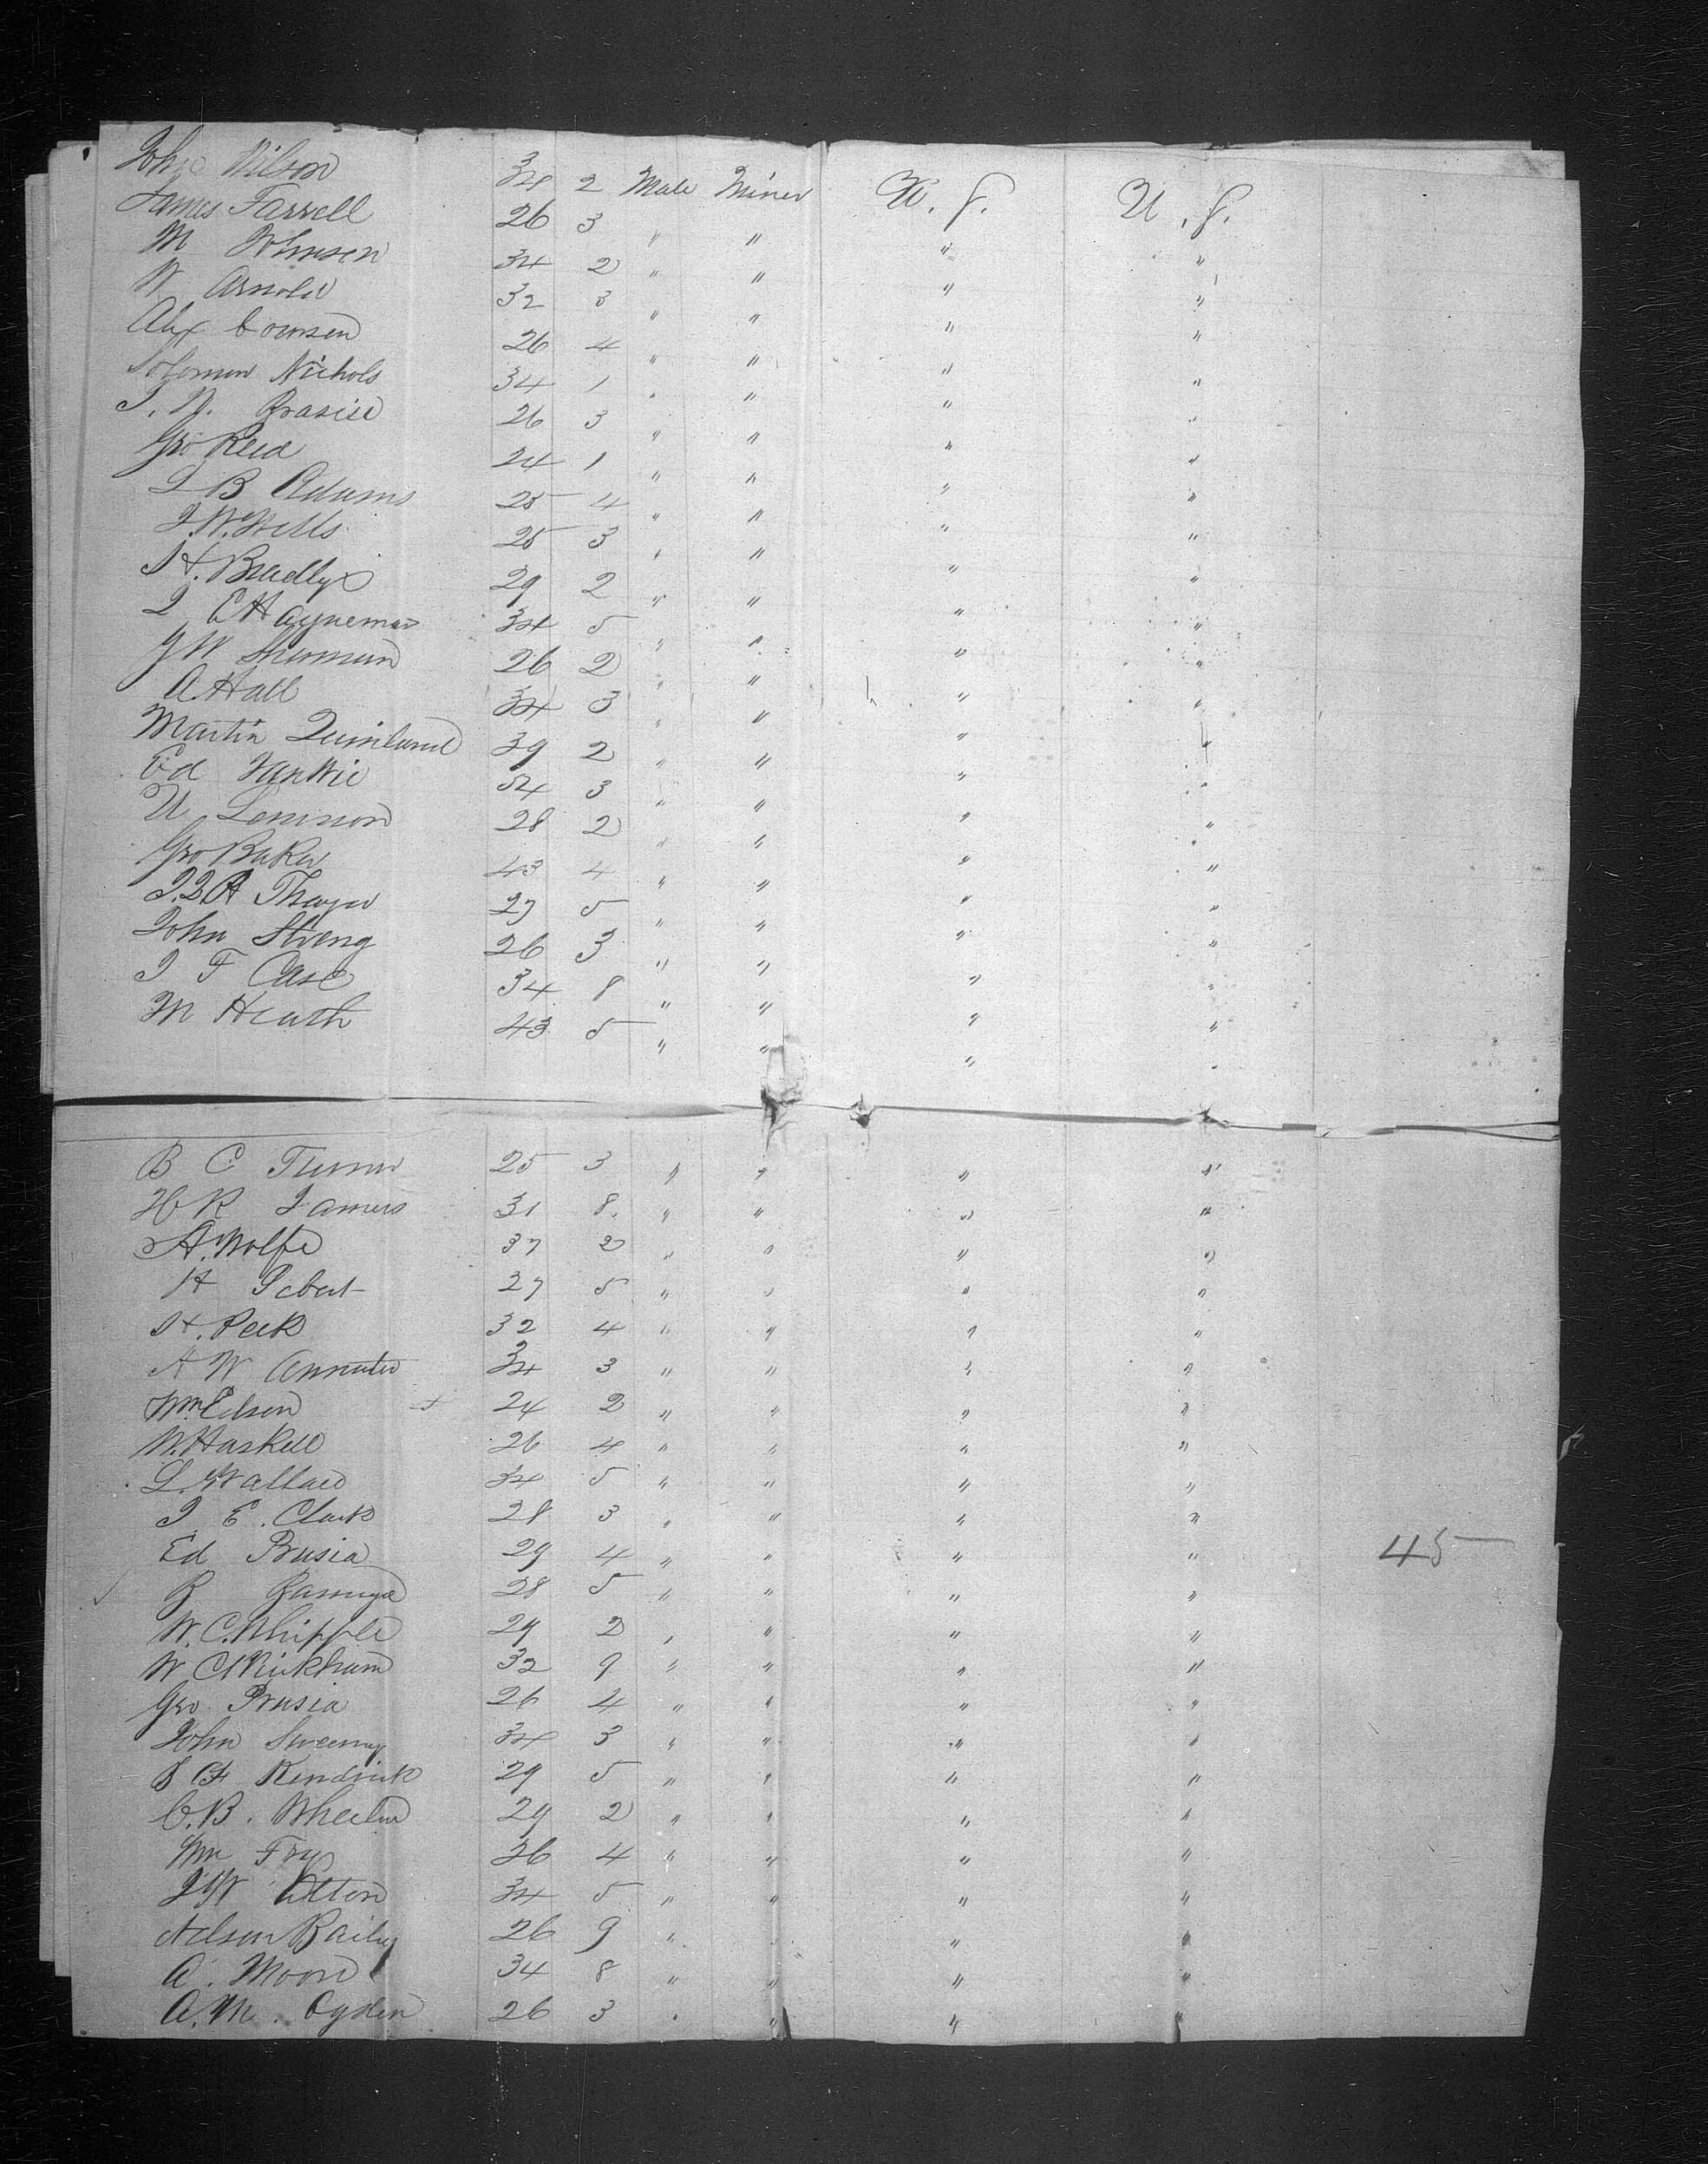 John Wilson 34 2 Male Miner U. S. U. S.
James Farrell 26 3 " " " "
M Johnson 34 2 " " " "
W Arnold 32 3 " " " "
Alex 26 4 " " " "
Solomon Nichols 34 1 " " " "
26 3 " " " "
Geo Reed 24 1 " " " "
L B Adams 25 4 " " " "
J. W. Wells 25 3 " " " "
H. Bradley 29 2 " " " "
J E Hayneman 34 5 " " " "
G W Sherman 26 2 " " " "
A. Hall 34 3 " " " "
Martin Quinland 39 2 " " " "
Ed 34 3 " " " "
28 2 " " " "
Geo Baker 43 4 " " " "
Thayer 27 5 " " " "
John Streng 26 3 " " " "
J F Case 34 8 " " " "
M Heath 43 5 " " " "
B C Turner 25 3 " " " "
H R 31 8 " " " "
A. Wolfe 37 2 " " " "
H Sebert 27 5 " " " "
H. Peck 32 4 " " " "
A W 34 3 " " " "
Wm Edson 24 2 " " " "
W. Haskell 26 4 " " " "
L. Wallace 34 5 " " " "
J. E. Clark 28 3 " " " "
Ed Prusia 29 4 " " " " 45
28 5 " " " "
W. C. Whipple 29 2 " " " "
W C Wickham 32 9 " " " "
Geo Prusia 26 4 " " " "
John Sweeney 34 3 " " " "
Kendrick 29 5 " " " "
C. B. Wheeler 29 2 " " " "
Wm Fry 36 4 " " " "
J W 34 5 " " " "
Nelson Bailey 26 9 " " "
A. Moore 34 8 " " " "
A. M. Ogden 26 3 " " "